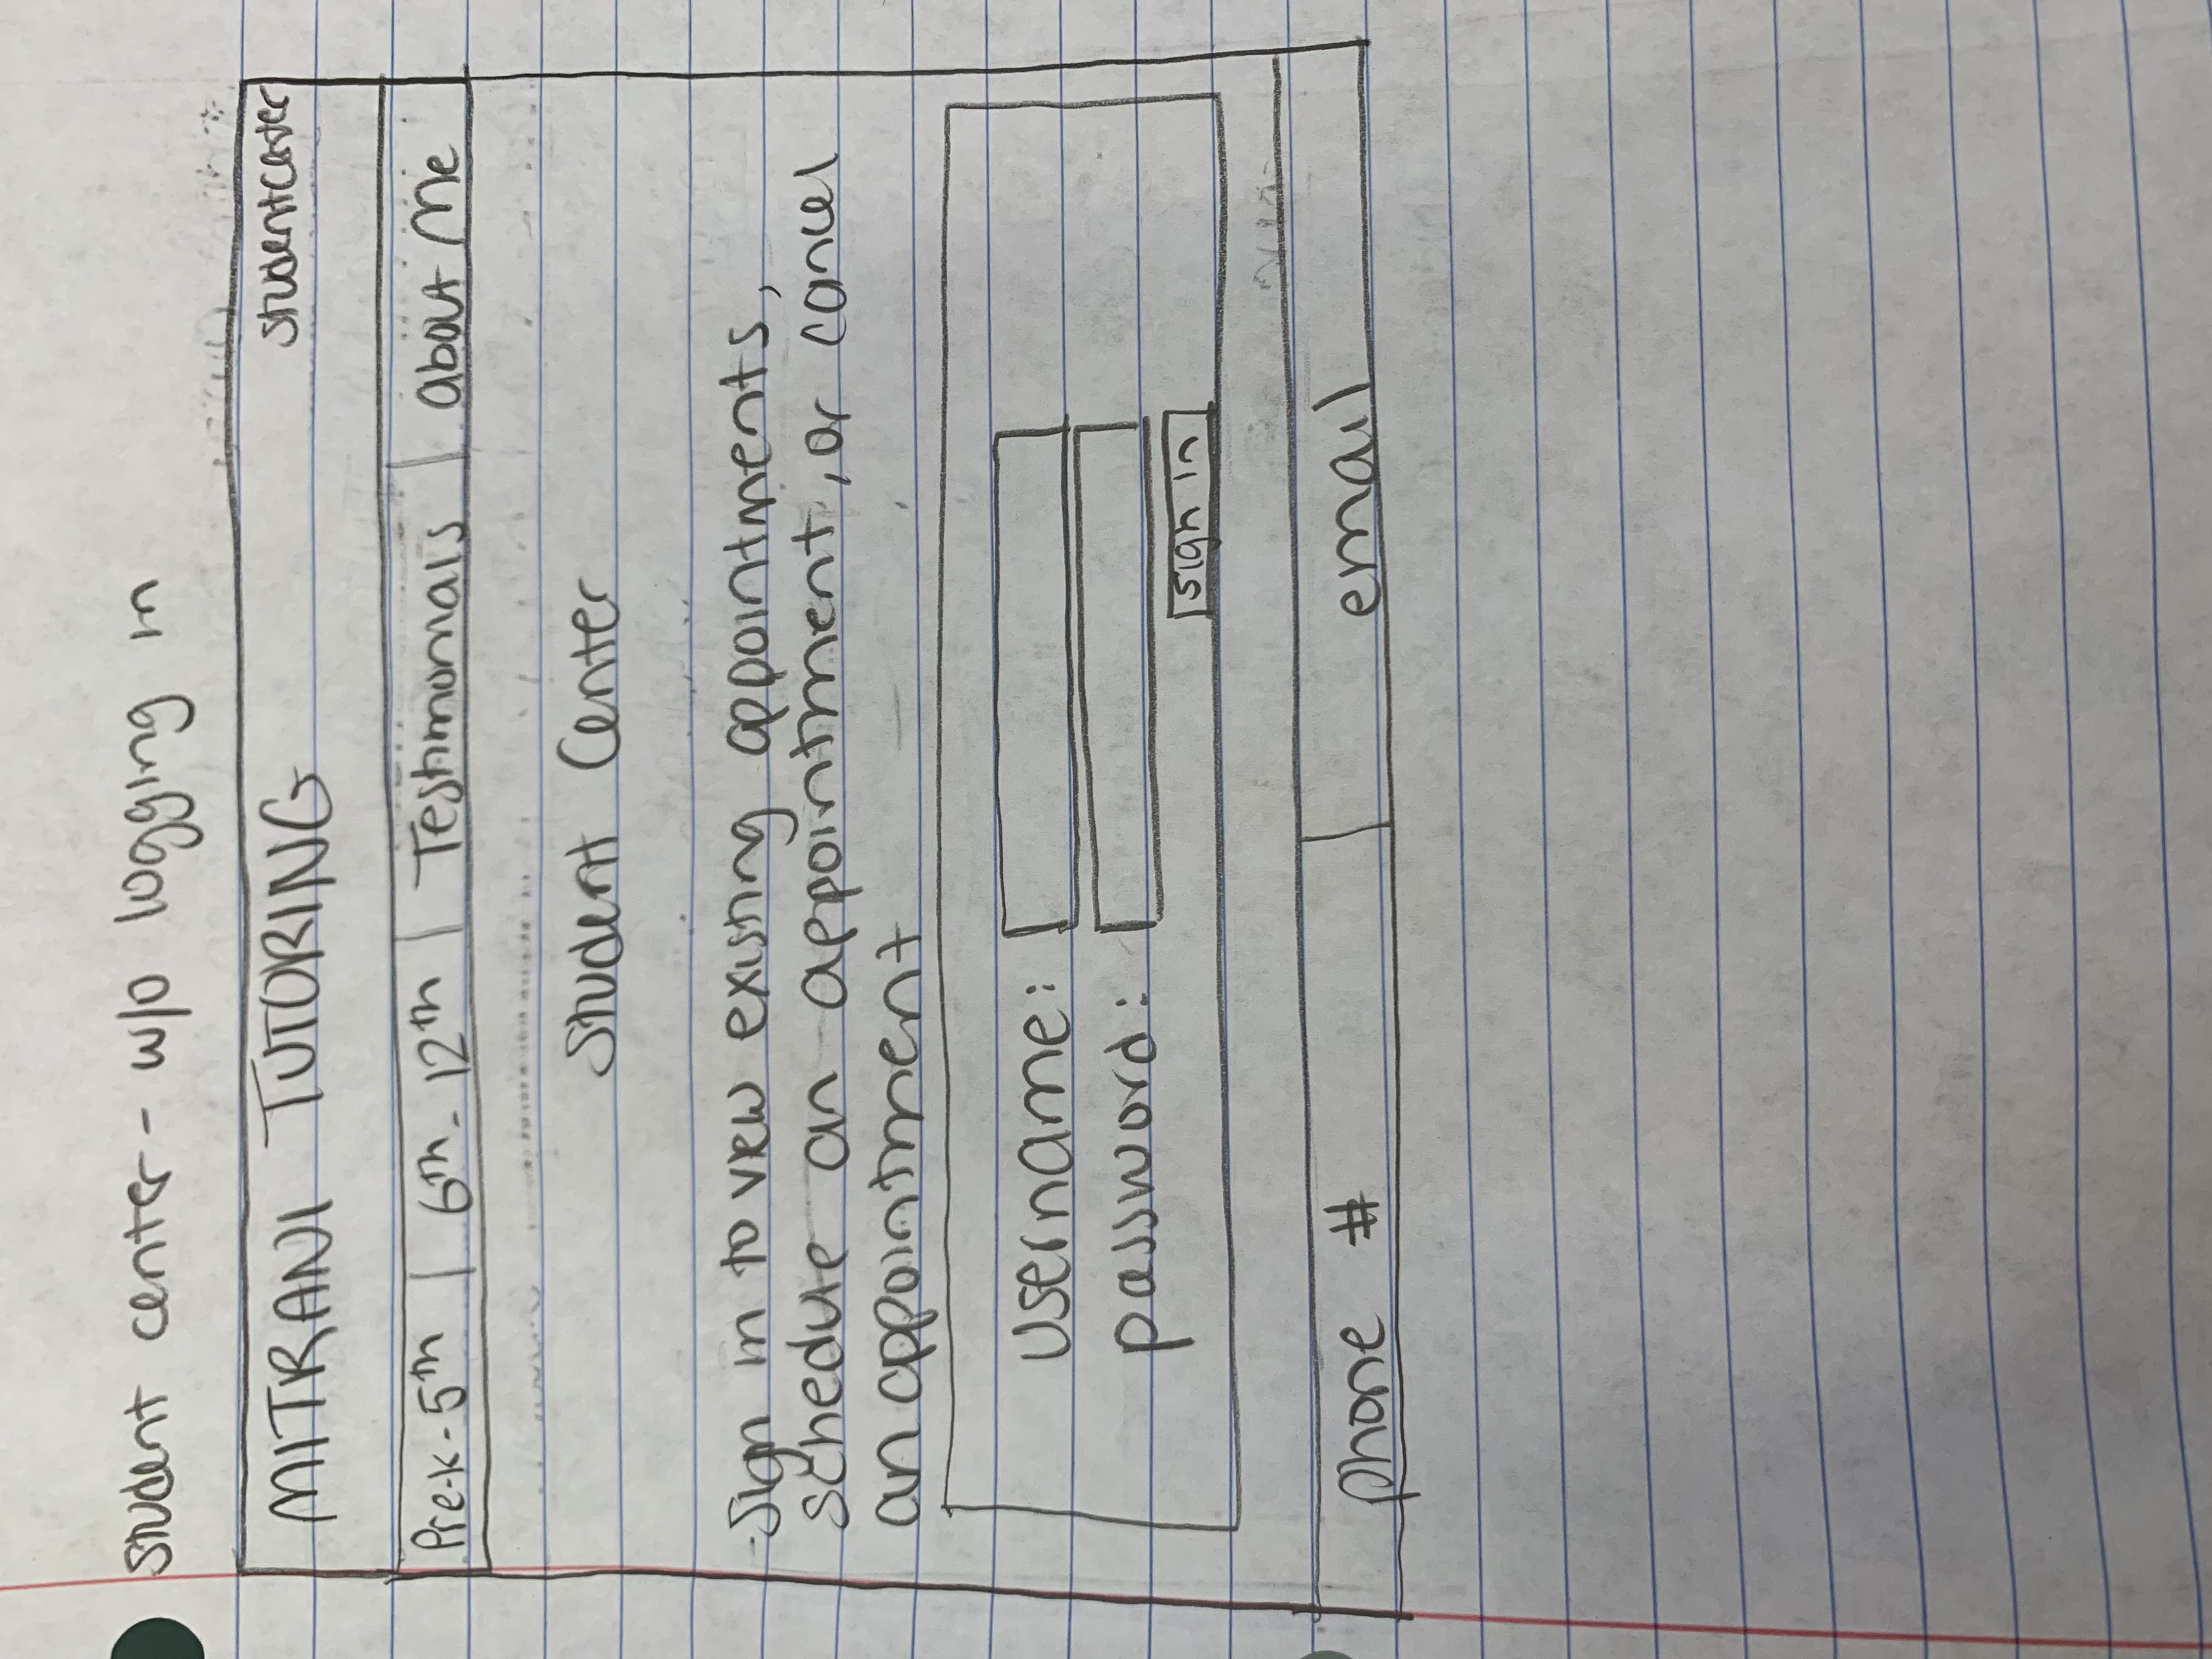 student center - w/o logging in
MITRANI TUTORING studentcenter
Pre-k - 5th | 6th - 12th | Testimonials | about Me
Student Center
-Sign in to view existing appointments,
schedule an appointment, or cancel
an appointment
username:
password:
sign in
phone # email